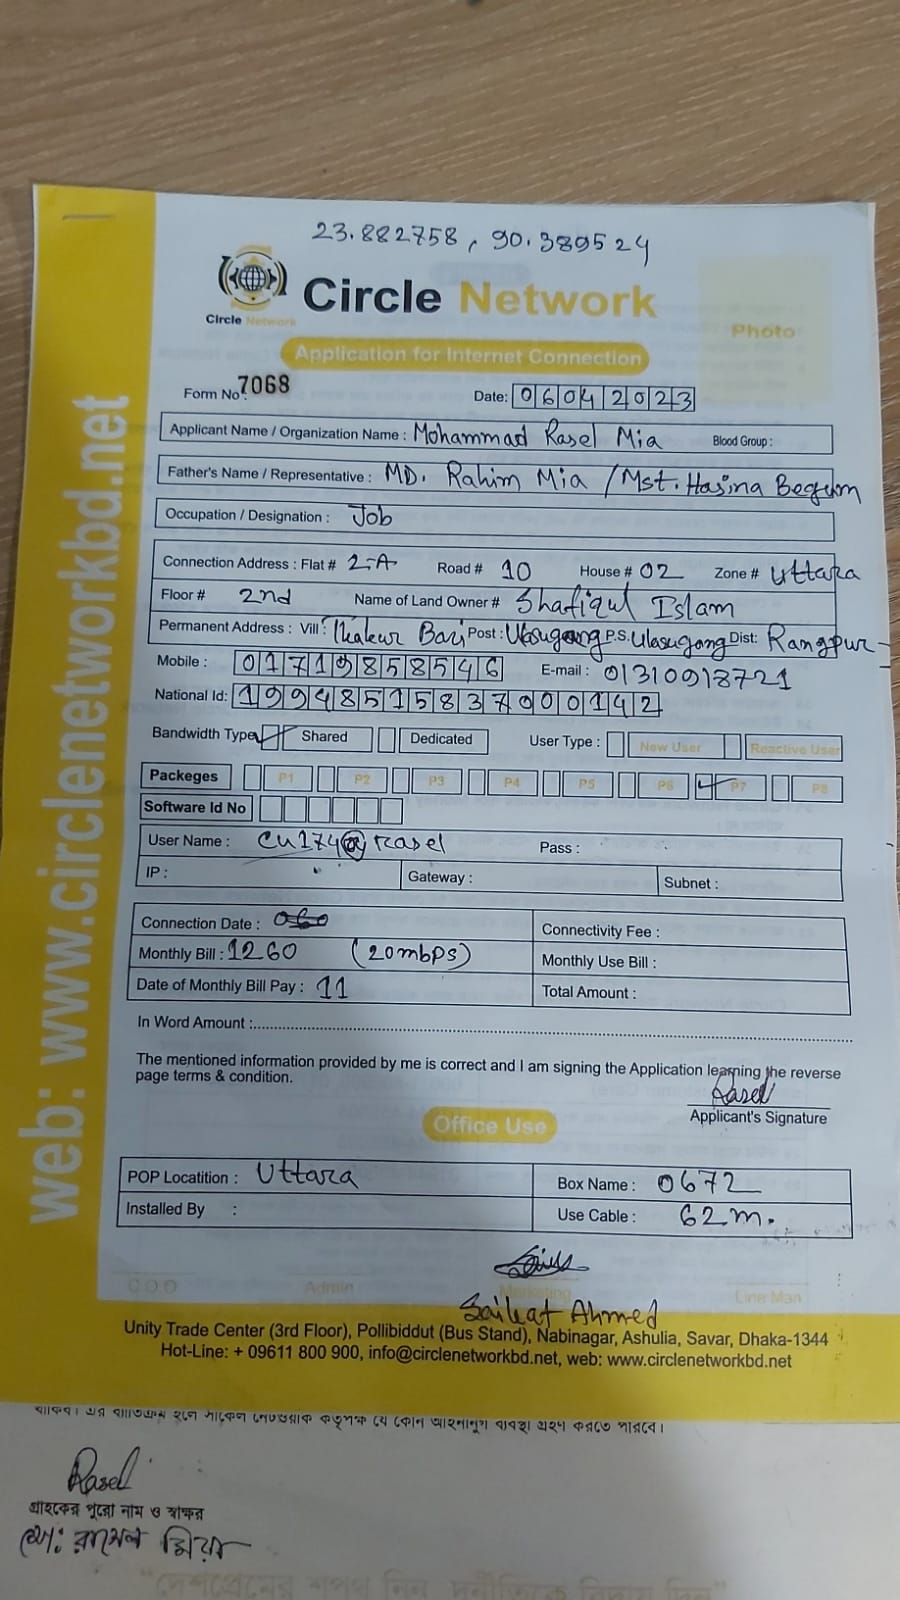 23.882758, 90.389524
Circle Network
Circle Network
Photo
Application for Internet Connection
Form No: 7068
Date: 06042023
Applicant Name / Organization Name : Mohammad Rasel Mia Blood Group :
Father's Name / Representative : MD. Rahim Mia / Mst. Hasina Begum
Occupation / Designation : Job
Connection Address : Flat # 2-A Road # 10 House # 02 Zone # Uttara
Floor # 2nd Name of Land Owner # Shafiqul Islam
Permanent Address : Vill : Thakur Bari Post : P.S. Ulasugong Dist: Rangpur
Mobile : 01719858546 E-mail : 01310918721
National Id: 19948515837000142
Bandwidth Type Shared Dedicated User Type : New User Reactive User
Packeges P1 P2 P3 P4 P5 P6 P7 P8
Software Id No
User Name : cu174@rasel Pass :
IP : Gateway : Subnet :
Connection Date : Connectivity Fee :
Monthly Bill : 1260 (20mbps) Monthly Use Bill :
Date of Monthly Bill Pay : 11 Total Amount :
In Word Amount :
The mentioned information provided by me is correct and I am signing the Application learning the reverse
page terms & condition.
Rasel
Applicant's Signature
Office Use
POP Locatition : Uttara Box Name : 0672
Installed By : Use Cable : 62m.
C.O.O Admin Marketing Line Man
Saikat Ahmed
Unity Trade Center (3rd Floor), Pollibiddut (Bus Stand), Nabinagar, Ashulia, Savar, Dhaka-1344
Hot-Line: + 09611 800 900, info@circlenetworkbd.net, web: www.circlenetworkbd.net
web: www.circlenetworkbd.net
থাকিব। এর ব্যতিক্রম হলে সার্কেল নেটওয়ার্ক কতৃপক্ষ যে কোন আইনানুগ ব্যবস্থা গ্রহণ করতে পারবে।
Rasel
গ্রাহকের পুরো নাম ও স্বাক্ষর
মো: রাসেল মিয়া
“দেশপ্রেমের শপথ নিন, দুর্নীতিকে বিদায় দিন”